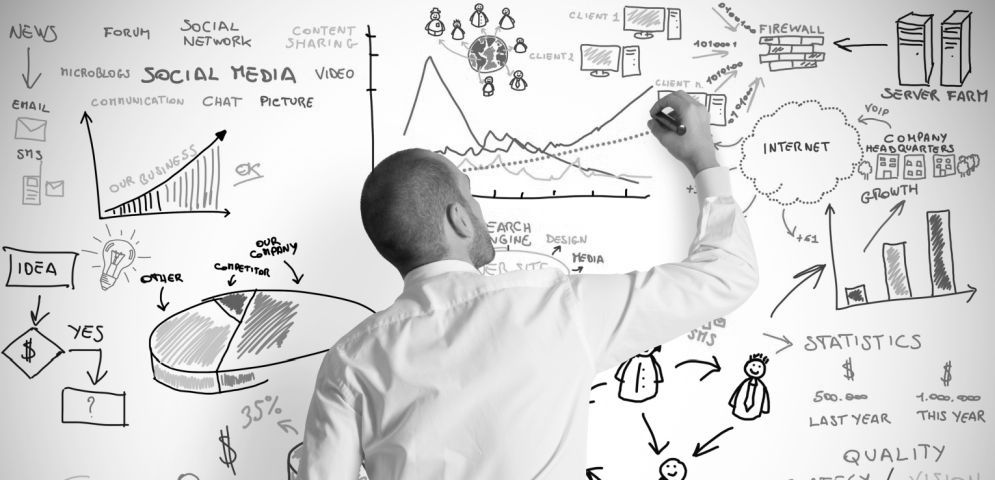 NEWS
FORUM
SOCIAL
NETWORK
CONTENT
SHARING
MICROBLOGS
SOCIAL MEDIA
VIDEO
EMAIL
COMMUNICATION
CHAT
PICTURE
SMS
OUR BUSINESS
OK
IDEA
$
YES
?
OTHER
COMPETITOR
OUR
COMPANY
35%
$
CLIENT 1
CLIENT 2
CLIENT n.
0101001
FIREWALL
SERVER FARM
INTERNET
VOIP
COMPANY
HEADQUARTERS
GROWTH
EARCH
NGINE
DESIGN
MEDIA
SITE
SMS
STATISTICS
$
$
500.000
1.000.000
LAST YEAR
THIS YEAR
QUALITY
VISION